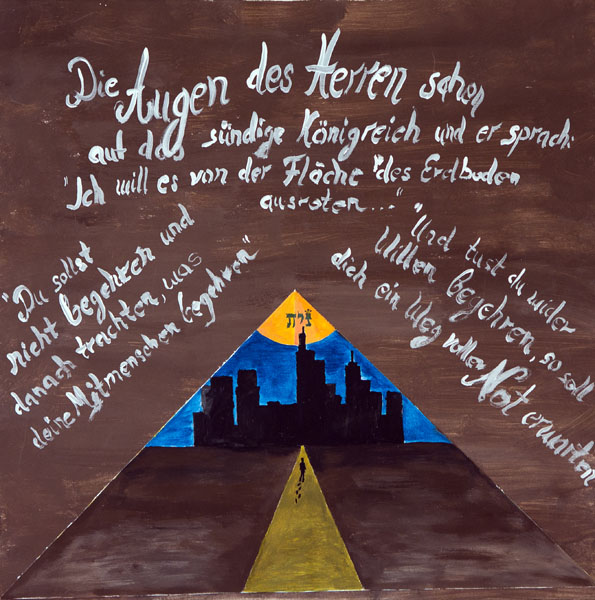 Die Augen des Herren sahen
auf das sündige Königreich und er sprach:
"Ich will es von der Fläche des Erdboden
ausroten..."
"Du sollst
nicht begehren und
danach trachten, was
deine Mitmenschen begehren"
"Und tust du wider
Willen begehren, so soll
dich ein Weg voller Not erwarten